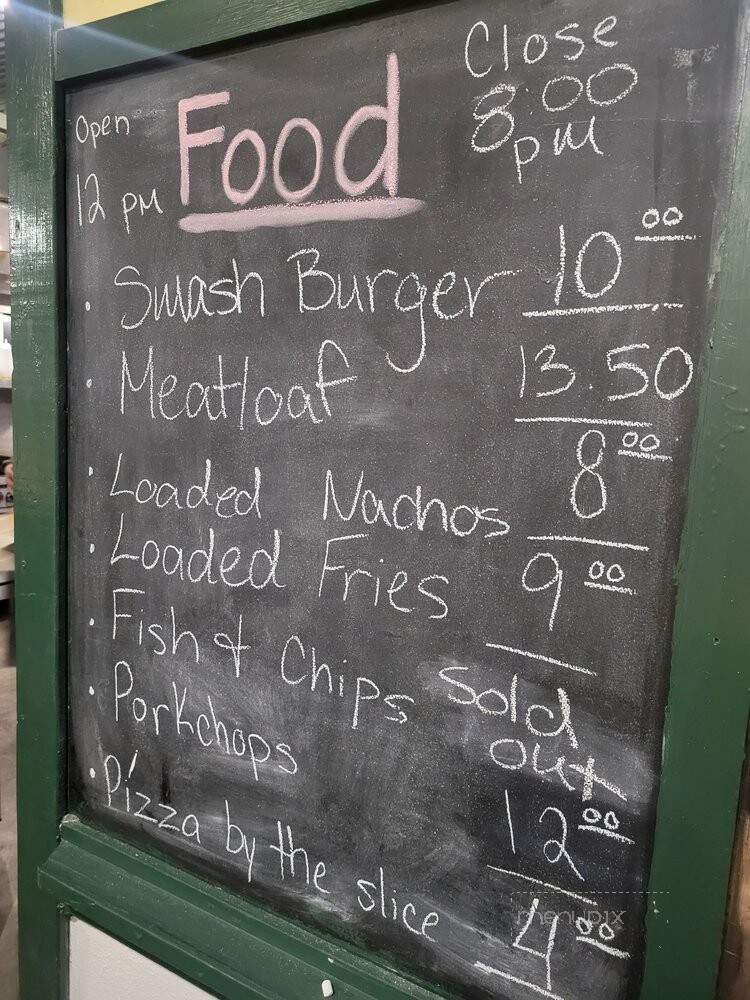 Open
12 pm
Food
Close
8:00
pm
• Smash Burger 10 00
• Meatloaf 13.50
• Loaded Nachos 8 00
• Loaded Fries 9 00
• Fish & Chips Sold out
• Porkchops 12 00
• Pizza by the slice 4 00
menupix